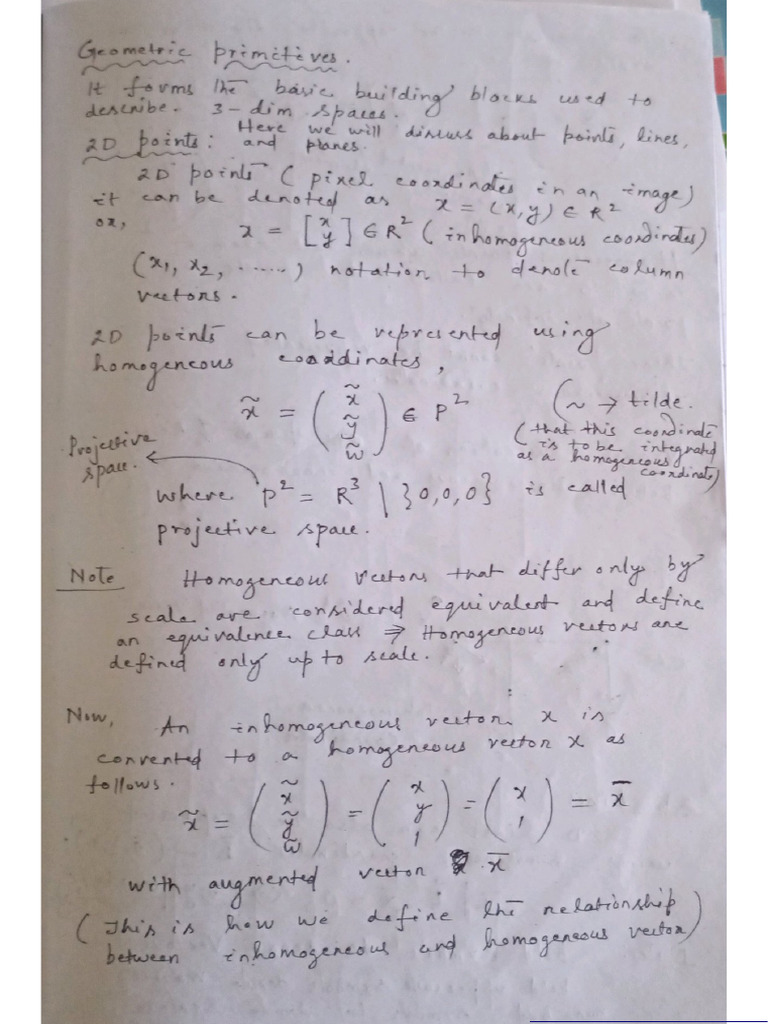 Geometric primitives.
It forms the basic building blocks used to
describe. 3-dim spaces.
Here we will discuss about points, lines,
and planes.
2D points:
2D points (pixel coordinates in an image)
it can be denoted as x = (x, y) ∈ R²
or, x = [x y] ∈ R² (inhomogeneous coordinates)
(x₁, x₂, ......) notation to denote column
vectors.
2D points can be represented using
homogeneous cooddinates,
x̃ = (x̃ ỹ w̃) ∈ P²
(~ → tilde.
(that this coordinate
is to be integrated
as a homogeneous
coordinate)
Projective
space.
where P² = R³ \ }0,0,0} is called
projective space.
Note Homogeneous vectors that differ only by
scale are considered equivalent and define
an equivalence class ⇒ Homogeneous vectors are
defined only up to scale.
Now, An inhomogeneous vector x is
converted to a homogeneous vector x as
follows.
x̃ = (x̃ ỹ w̃) = (x y 1) = (x 1) = x̄
with augmented vector x̄
(This is how we define the relationship
between inhomogeneous and homogeneous vector)